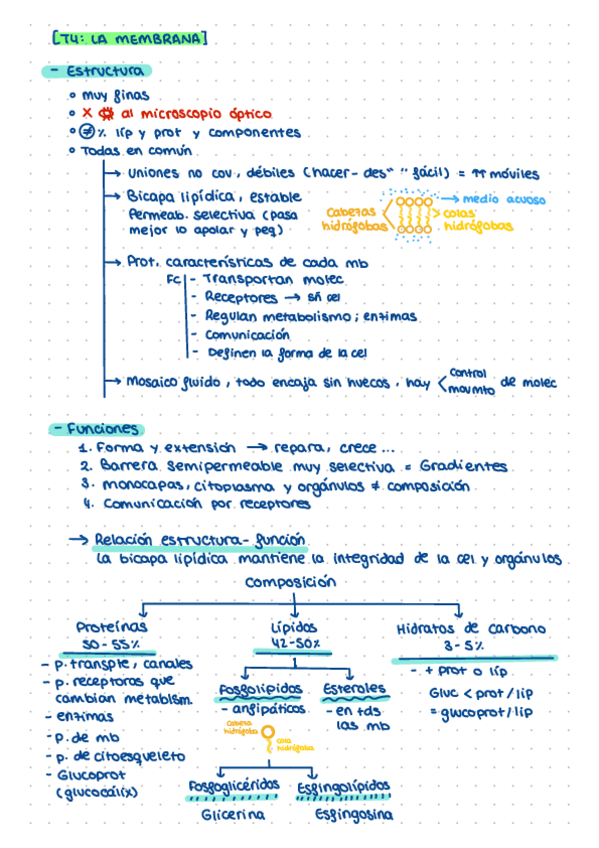 [T4: LA MEMBRANA]
- Estructura
• muy finas
• X al microscopio óptico
• ≠ % líp y prot y componentes
• Todas en común
→ Uniones no cov, débiles (hacer-des" " fácil) = ↑↑ móviles
→ Bicapa lipídica, estable
Permeab. selectiva (pasa
mejor lo apolar y peq)
Cabezas
hidrófobas
→ medio acuoso
colas
hidrófobas
→ Prot. características de cada mb
FC
- Transportan molec
- Receptores → sñ cel
- Regulan metabolismo; enzimas
- Comunicación
- Definen la forma de la cel
→ Mosaico fluido, todo encaja sin huecos, hay < control
movmto de molec
- Funciones
1. Forma y extensión → repara, crece ...
2. Barrera semipermeable muy selectiva = Gradientes
3. monocapas, citoplasma y orgánulos ≠ composición
4. Comunicación por receptores
→ Relación estructura-función
La bicapa lipídica mantiene la integridad de la cel y orgánulos
composición
Proteínas
50-55%
- p. transpte, canales
- p. receptoras que
cambian metabism.
- enzimas
- p. de mb
- p. de citoesqueleto
- Glucoprot
(glucocálix)
Lípidos
42-50%
Fosfolípidos
- anfipáticos
Cabeza
hidrófoba
cola
hidrófoba
Esteroles
- en tds
las mb
Fosfoglicéridos
Glicerina
Esfingolípidos
Esfingosina
Hidratos de carbono
3-5%
- + prot o líp
Gluc < prot/líp
= glucoprot/líp